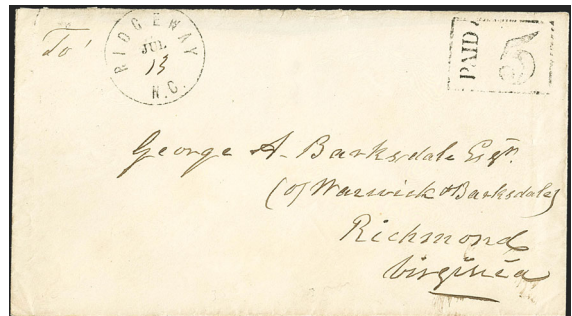 To'
RIDGEWAY
JUL
13
N.C.
PAID
5
George A. Barksdale Esqr.
(of Warwick & Barksdale)
Richmond
Virginia